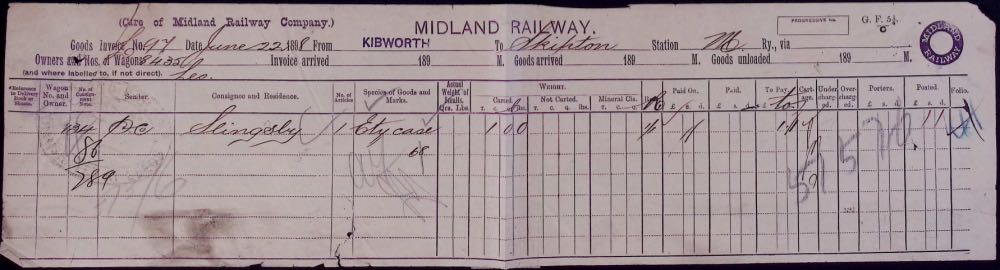 (Care of Midland Railway Company.)
MIDLAND RAILWAY.
PROGRESSIVE No.
G. F. 5½
Goods Invoice No. 97 Date June 22 1898 From KIBWORTH To Skipton Station M. Ry., via
Owners and Nos. of Wagons 8435 Invoice arrived 189 M. Goods arrived 189 M. Goods unloaded 189 M.
(and where labelled to, if not direct). Leo.
MIDLAND RAILWAY
Reference to Delivery Book or Sheets. Wagon No. and Owner. No. of Consignment Sender. Consignee and Residence. No. of Articles Species of Goods and Marks. Actual Weight of Smalls. Qrs. Lbs. WEIGHT. Carted. T. C. Q. lbs. Not Carted. T. C. Q. lbs. Mineral Cls. T. C. Q. Rate Paid On. £ s. d. Paid. £ s. d. To Pay. £ s. d. Cartage. Undercharged. Overcharged. £ s. d. Porters. £ s. d. Posted. £ s. d. Folio.
Slingsby 1 Ety case 1 0 0
68
86
289